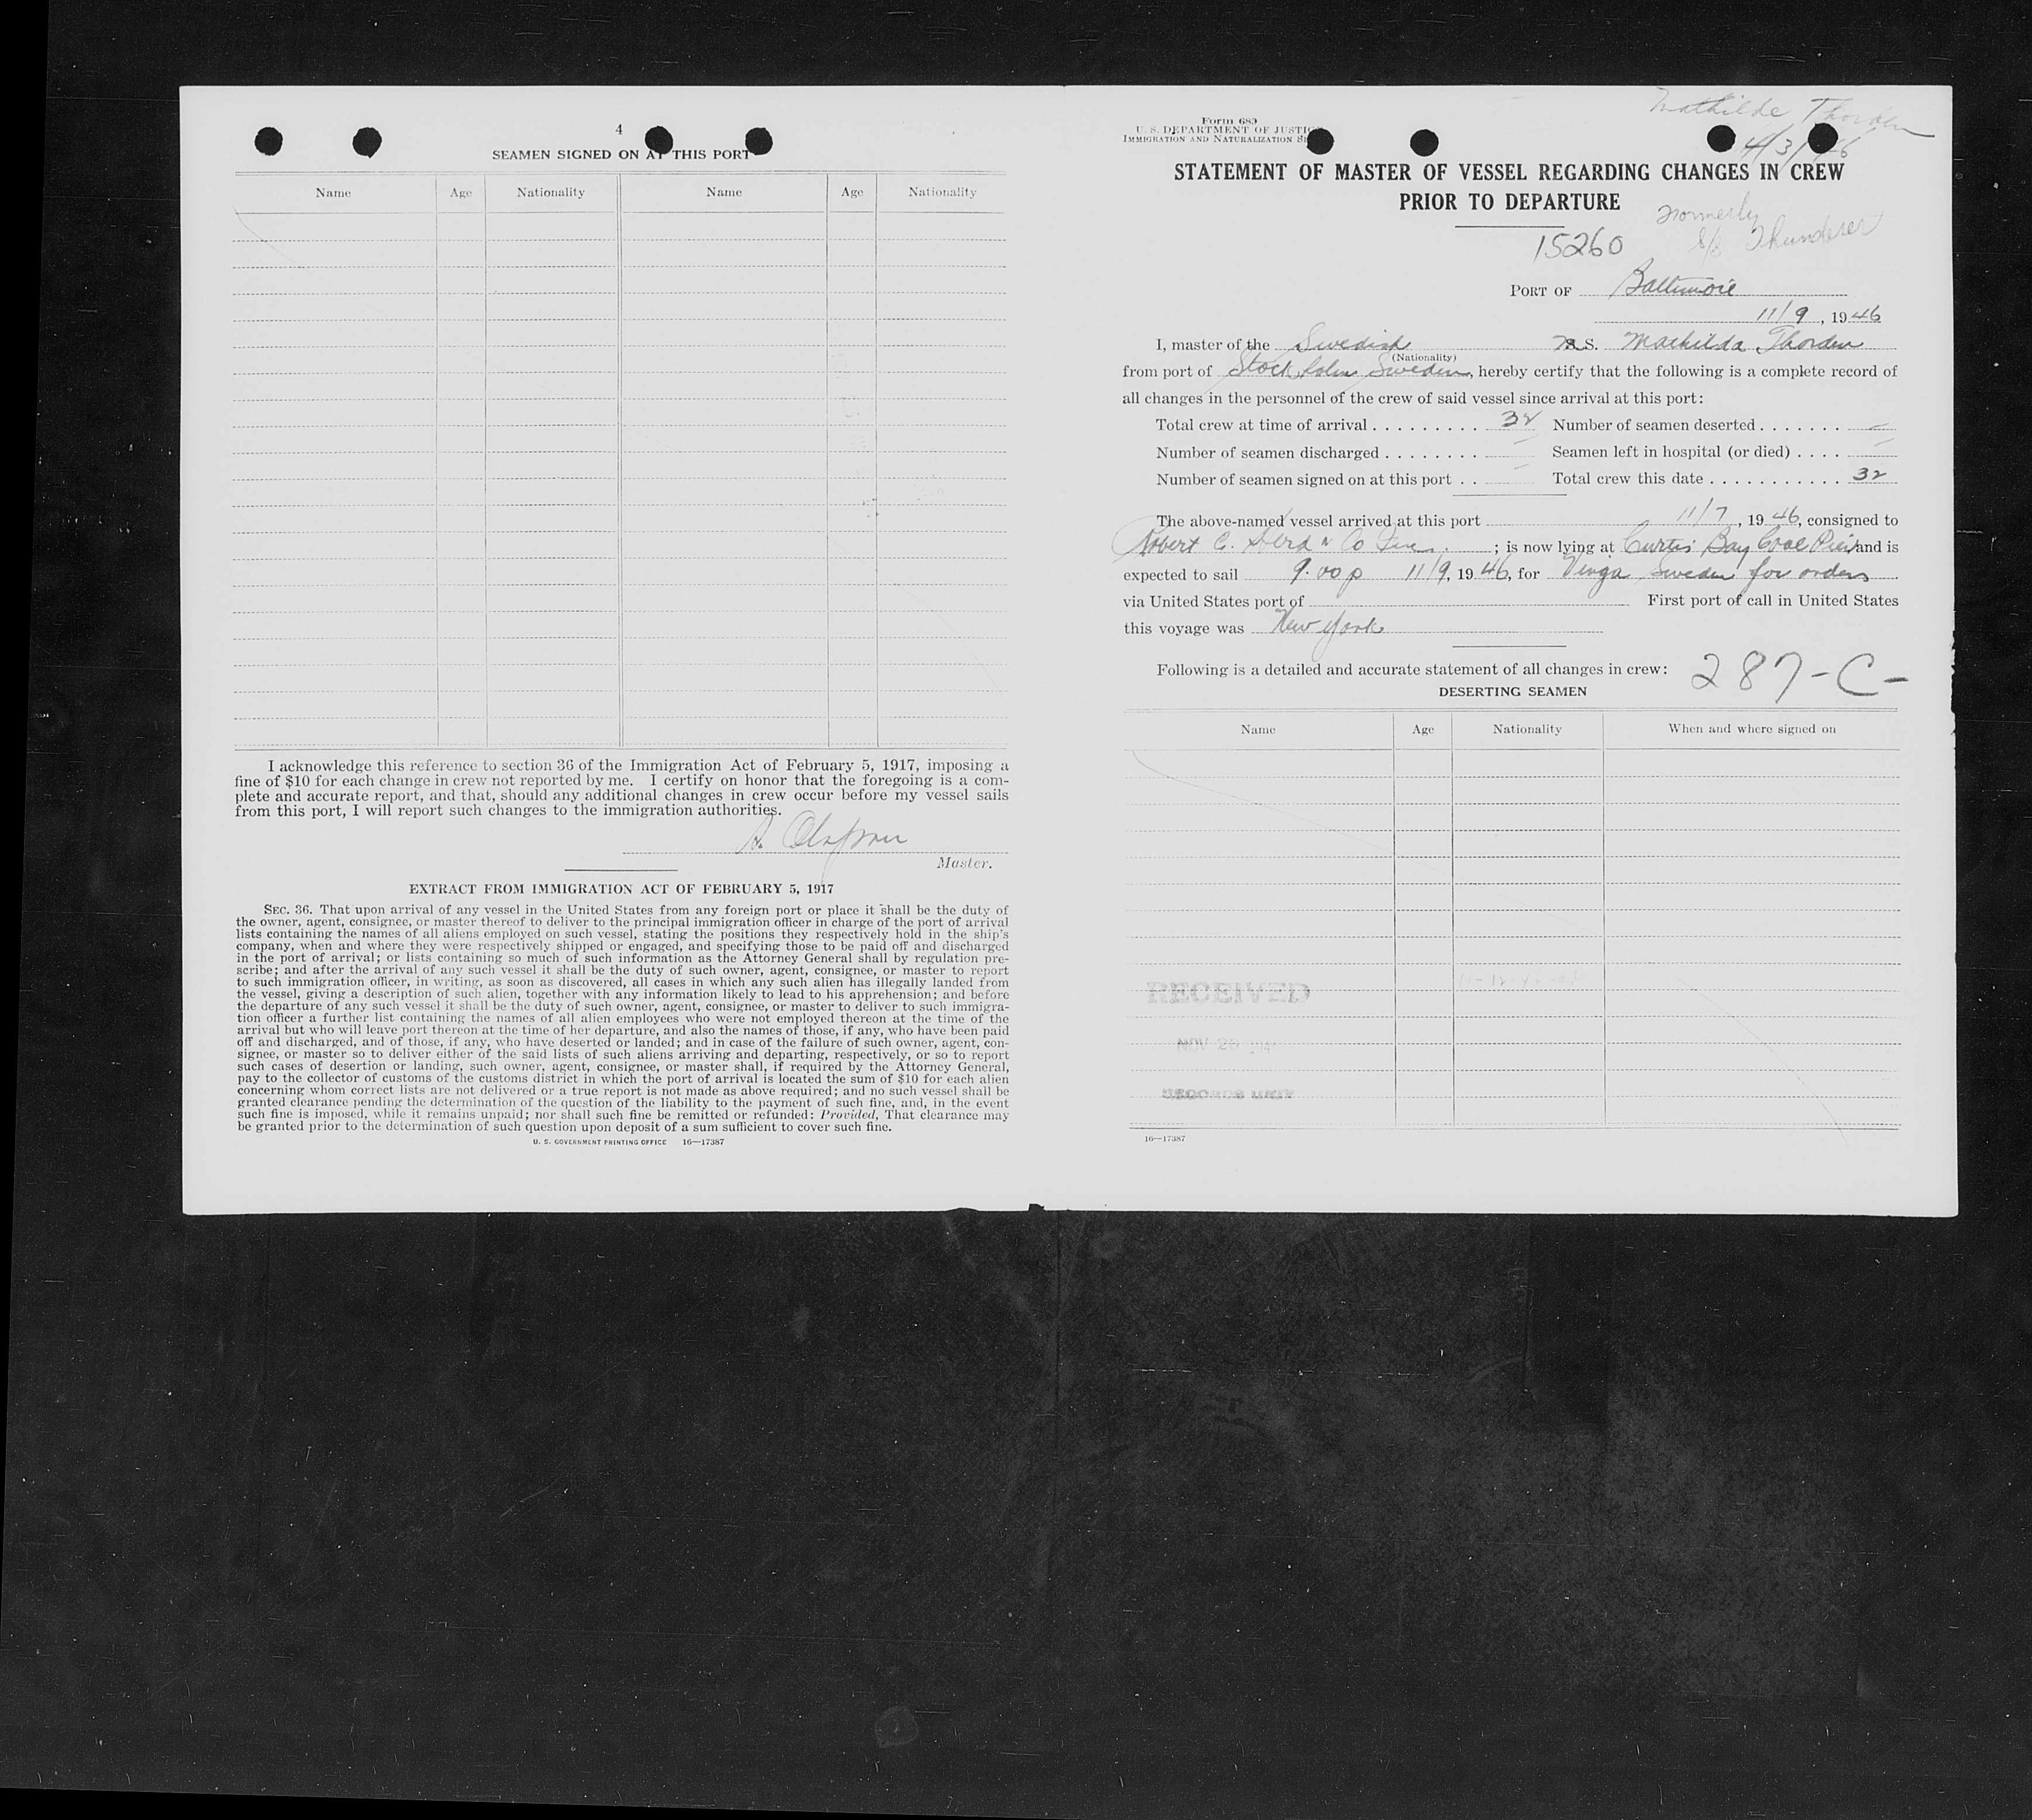 4
SEAMEN SIGNED ON AT THIS PORT
Name Age Nationality Name Age Nationality
I acknowledge this reference to section 36 of the Immigration Act of February 5, 1917, imposing a
fine of $10 for each change in crew not reported by me. I certify on honor that the foregoing is a com-
plete and accurate report, and that, should any additional changes in crew occur before my vessel sails
from this port, I will report such changes to the immigration authorities.
A.
Master.
EXTRACT FROM IMMIGRATION ACT OF FEBRUARY 5, 1917
SEC. 36. That upon arrival of any vessel in the United States from any foreign port or place it shall be the duty of
the owner, agent, consignee, or master thereof to deliver to the principal immigration officer in charge of the port of arrival
lists containing the names of all aliens employed on such vessel, stating the positions they respectively hold in the ship's
company, when and where they were respectively shipped or engaged, and specifying those to be paid off and discharged
in the port of arrival; or lists containing so much of such information as the Attorney General shall by regulation pre-
scribe; and after the arrival of any such vessel it shall be the duty of such owner, agent, consignee, or master to report
to such immigration officer, in writing, as soon as discovered, all cases in which any such alien has illegally landed from
the vessel, giving a description of such alien, together with any information likely to lead to his apprehension; and before
the departure of any such vessel it shall be the duty of such owner, agent, consignee, or master to deliver to such immigra-
tion officer a further list containing the names of all alien employees who were not employed thereon at the time of the
arrival but who will leave port thereon at the time of her departure, and also the names of those, if any, who have been paid
off and discharged, and of those, if any, who have deserted or landed; and in case of the failure of such owner, agent, con-
signee, or master so to deliver either of the said lists of such aliens arriving and departing, respectively, or so to report
such cases of desertion or landing, such owner, agent, consignee, or master shall, if required by the Attorney General,
pay to the collector of customs of the customs district in which the port of arrival is located the sum of $10 for each alien
concerning whom correct lists are not delivered or a true report is not made as above required; and no such vessel shall be
granted clearance pending the determination of the question of the liability to the payment of such fine, and, in the event
such fine is imposed, while it remains unpaid; nor shall such fine be remitted or refunded: Provided, That clearance may
be granted prior to the determination of such question upon deposit of a sum sufficient to cover such fine.
U. S. GOVERNMENT PRINTING OFFICE 16—17387
Mathilde Thorden
Form 689
U. S. DEPARTMENT OF JUSTICE
IMMIGRATION AND NATURALIZATION
STATEMENT OF MASTER OF VESSEL REGARDING CHANGES IN CREW
PRIOR TO DEPARTURE
Formerly
S/S Thunderer
15260
PORT OF Baltimore
11/9, 1946
I, master of the Swedish S. Mathilda Thorden
(Nationality)
from port of Stockholm Sweden, hereby certify that the following is a complete record of
all changes in the personnel of the crew of said vessel since arrival at this port:
Total crew at time of arrival 32 Number of seamen deserted —
Number of seamen discharged — Seamen left in hospital (or died) —
Number of seamen signed on at this port — Total crew this date 32
The above-named vessel arrived at this port 11/7, 1946, consigned to
Robert C. Herd & Co Inc.; is now lying at Curtis Bay Coal Pier and is
expected to sail 9.00 p 11/9, 1946, for Vinga Sweden for orders
via United States port of First port of call in United States
this voyage was New York
Following is a detailed and accurate statement of all changes in crew: 287-C-
DESERTING SEAMEN
Name Age Nationality When and where signed on
RECEIVED
NOV 20
RECORDS UNIT
16—17387